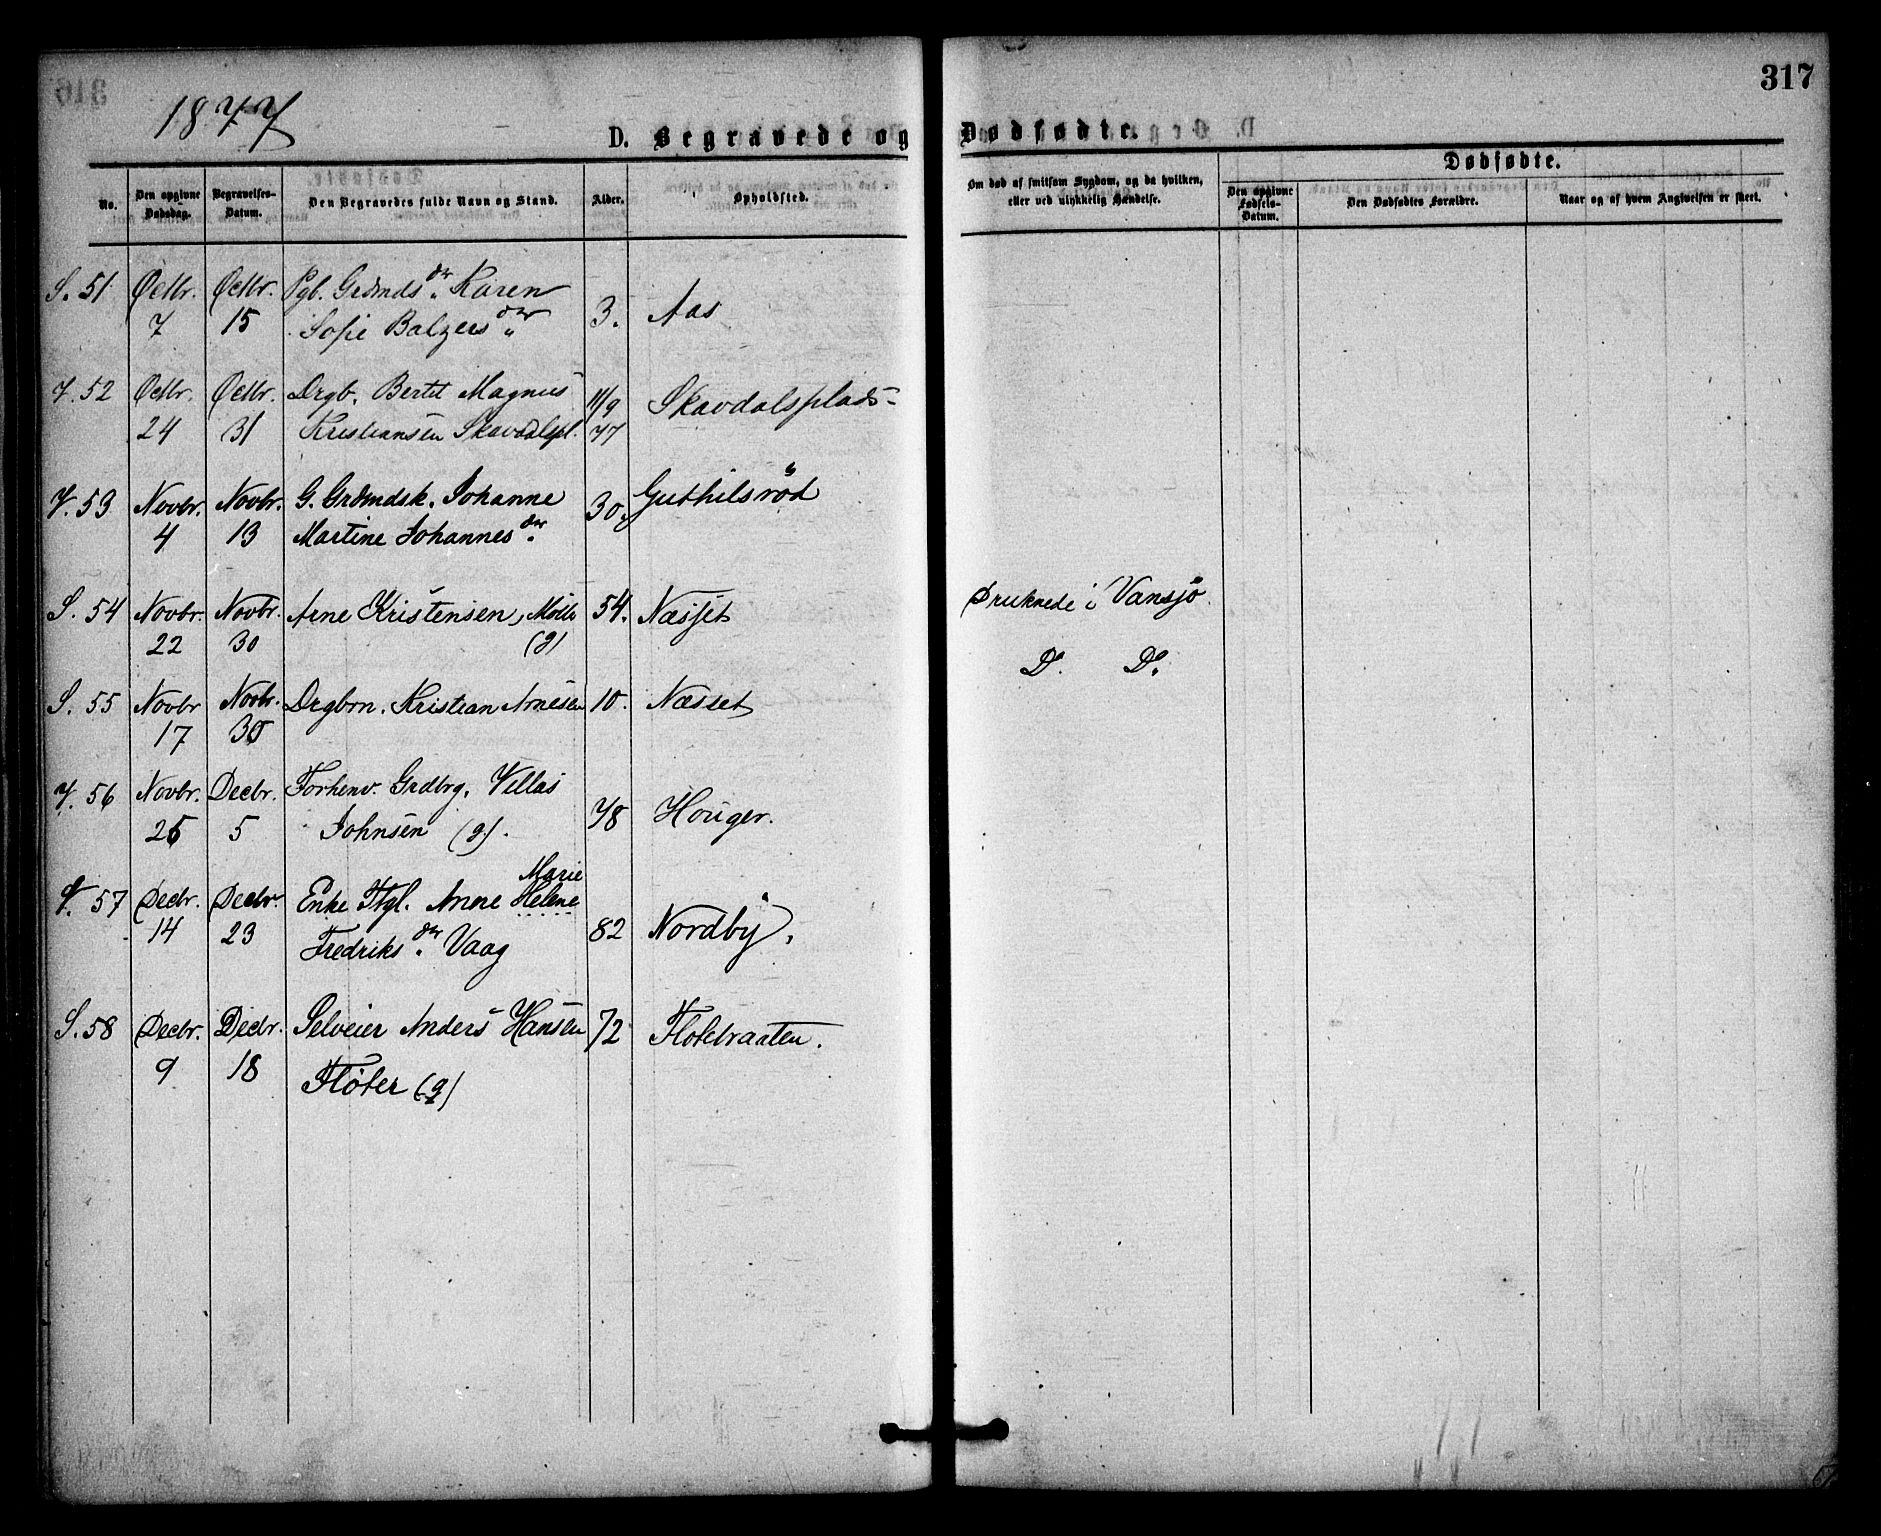 317
1877
D. Begravede og Dødfødte.
No.
Den opgivne Dødsdag.
Begravelses-Datum.
Den Begravedes fulde Navn og Stand.
Alder.
Opholdsted.
Om død af smitsom Sygdom, og da hvilken, eller ved ulykkelig Hændelse.
Dødfødte.
Den opgivne Fødsels-Datum.
Den Dødfødtes Forældre.
Naar og af hvem Angivelsen er skeet.
S. 51 Octbr. Octbr. Pgb. Grdmds dtr Karen
7 15 Sofie Balzers dtr 3. Aas
V. 52 Octbr. Octbr. Drgb. Bertit Magnus 11/9 Skavdalsplads
24 31 Kristiansen Skavdalspl. 77
V. 53 Novbr. Novbr. G. Grdmdsk. Johanne 30. Guthilsrød
4 13 Martine Johannes dtr
S. 54 Novbr. Novbr. Arne Kristensen, 54. Næsset Druknede i Vansjø.
22 30 (g)
S. 55 Novbr Novbr. Drgbrn. Kristian Arnesen 10. Næsset Do. Do.
17 30
V. 56 Novbr. Decbr. Forhenv. Grdbrg. Villas
25 5 Johnsen (g). 78 Houger.
V. 57 Decbr. Decbr Enke Ftgl. Anne Marie Helene
14 23 Fredriks dtr Vaag 82 Nordby.
S. 58 Decbr. Decbr. Selveier Anders Hansen 72 Flotebraaten.
9 18 Fløter (g)